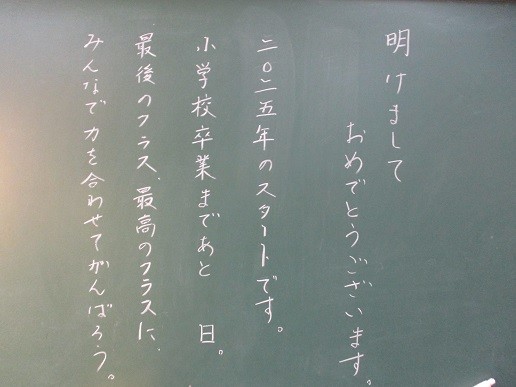 明けまして
おめでとうございます。
二〇二五年のスタートです。
小学校卒業まであと　日。
最後のクラス、最高のクラスに、
みんなで力を合わせてがんばろう。